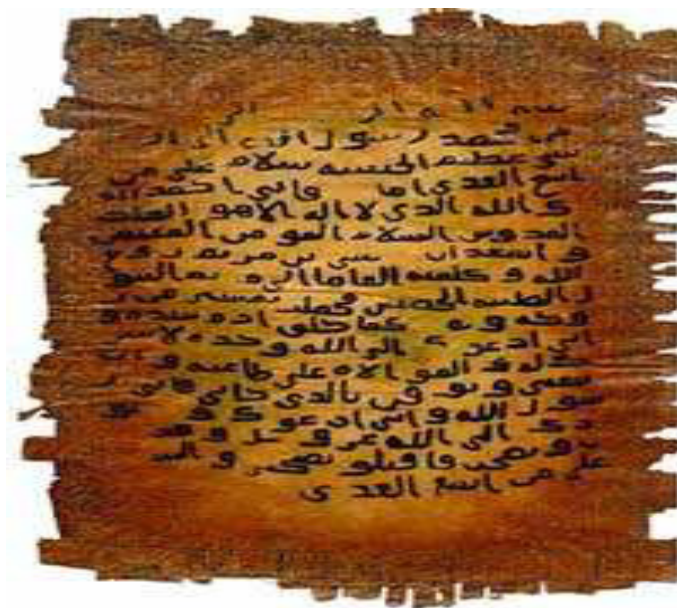 بسم الله الر
من محمد رسول الله الى النجا
شى عظيم الحبشه سلام على من
اتبع الهدى اما فانى احمد الله
ك الله الذى لا اله الا هو الملك
القدوس السلام المومن المهيمن
و اشهد ان بن مريم روح
الله و كلمته القاها الى مريم البتو
ل الطيبه الحصينه فحملت بعيسى من ر
وحه و كما خلق ادم بيده و
انى ادعوك الى الله وحده لا شر
يك له و الموالاه على طاعته و ان
تتبعنى و تو من بالذى جانى فانى ر
سول الله و انى ادعوك و جنو
دك الى الله عز و جل و قد
و نصحت فاقبلو نصحى و السلام
على من اتبع الهدى